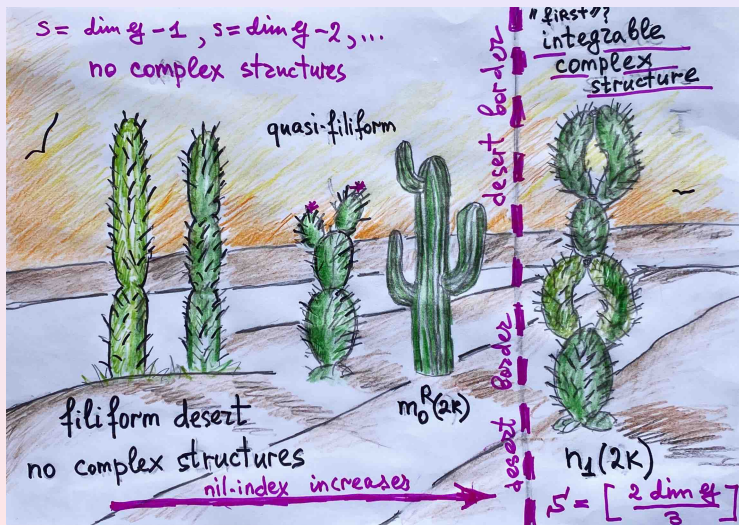 s = dim g - 1, s = dim g - 2, ...
no complex structures
"first"?
integrable
complex
structure
quasi-filiform
desert border
desert border
filiform desert
no complex structures
m₀ᴿ(2K)
n₁(2K)
nil-index increases
S = [2 dim g / 3]